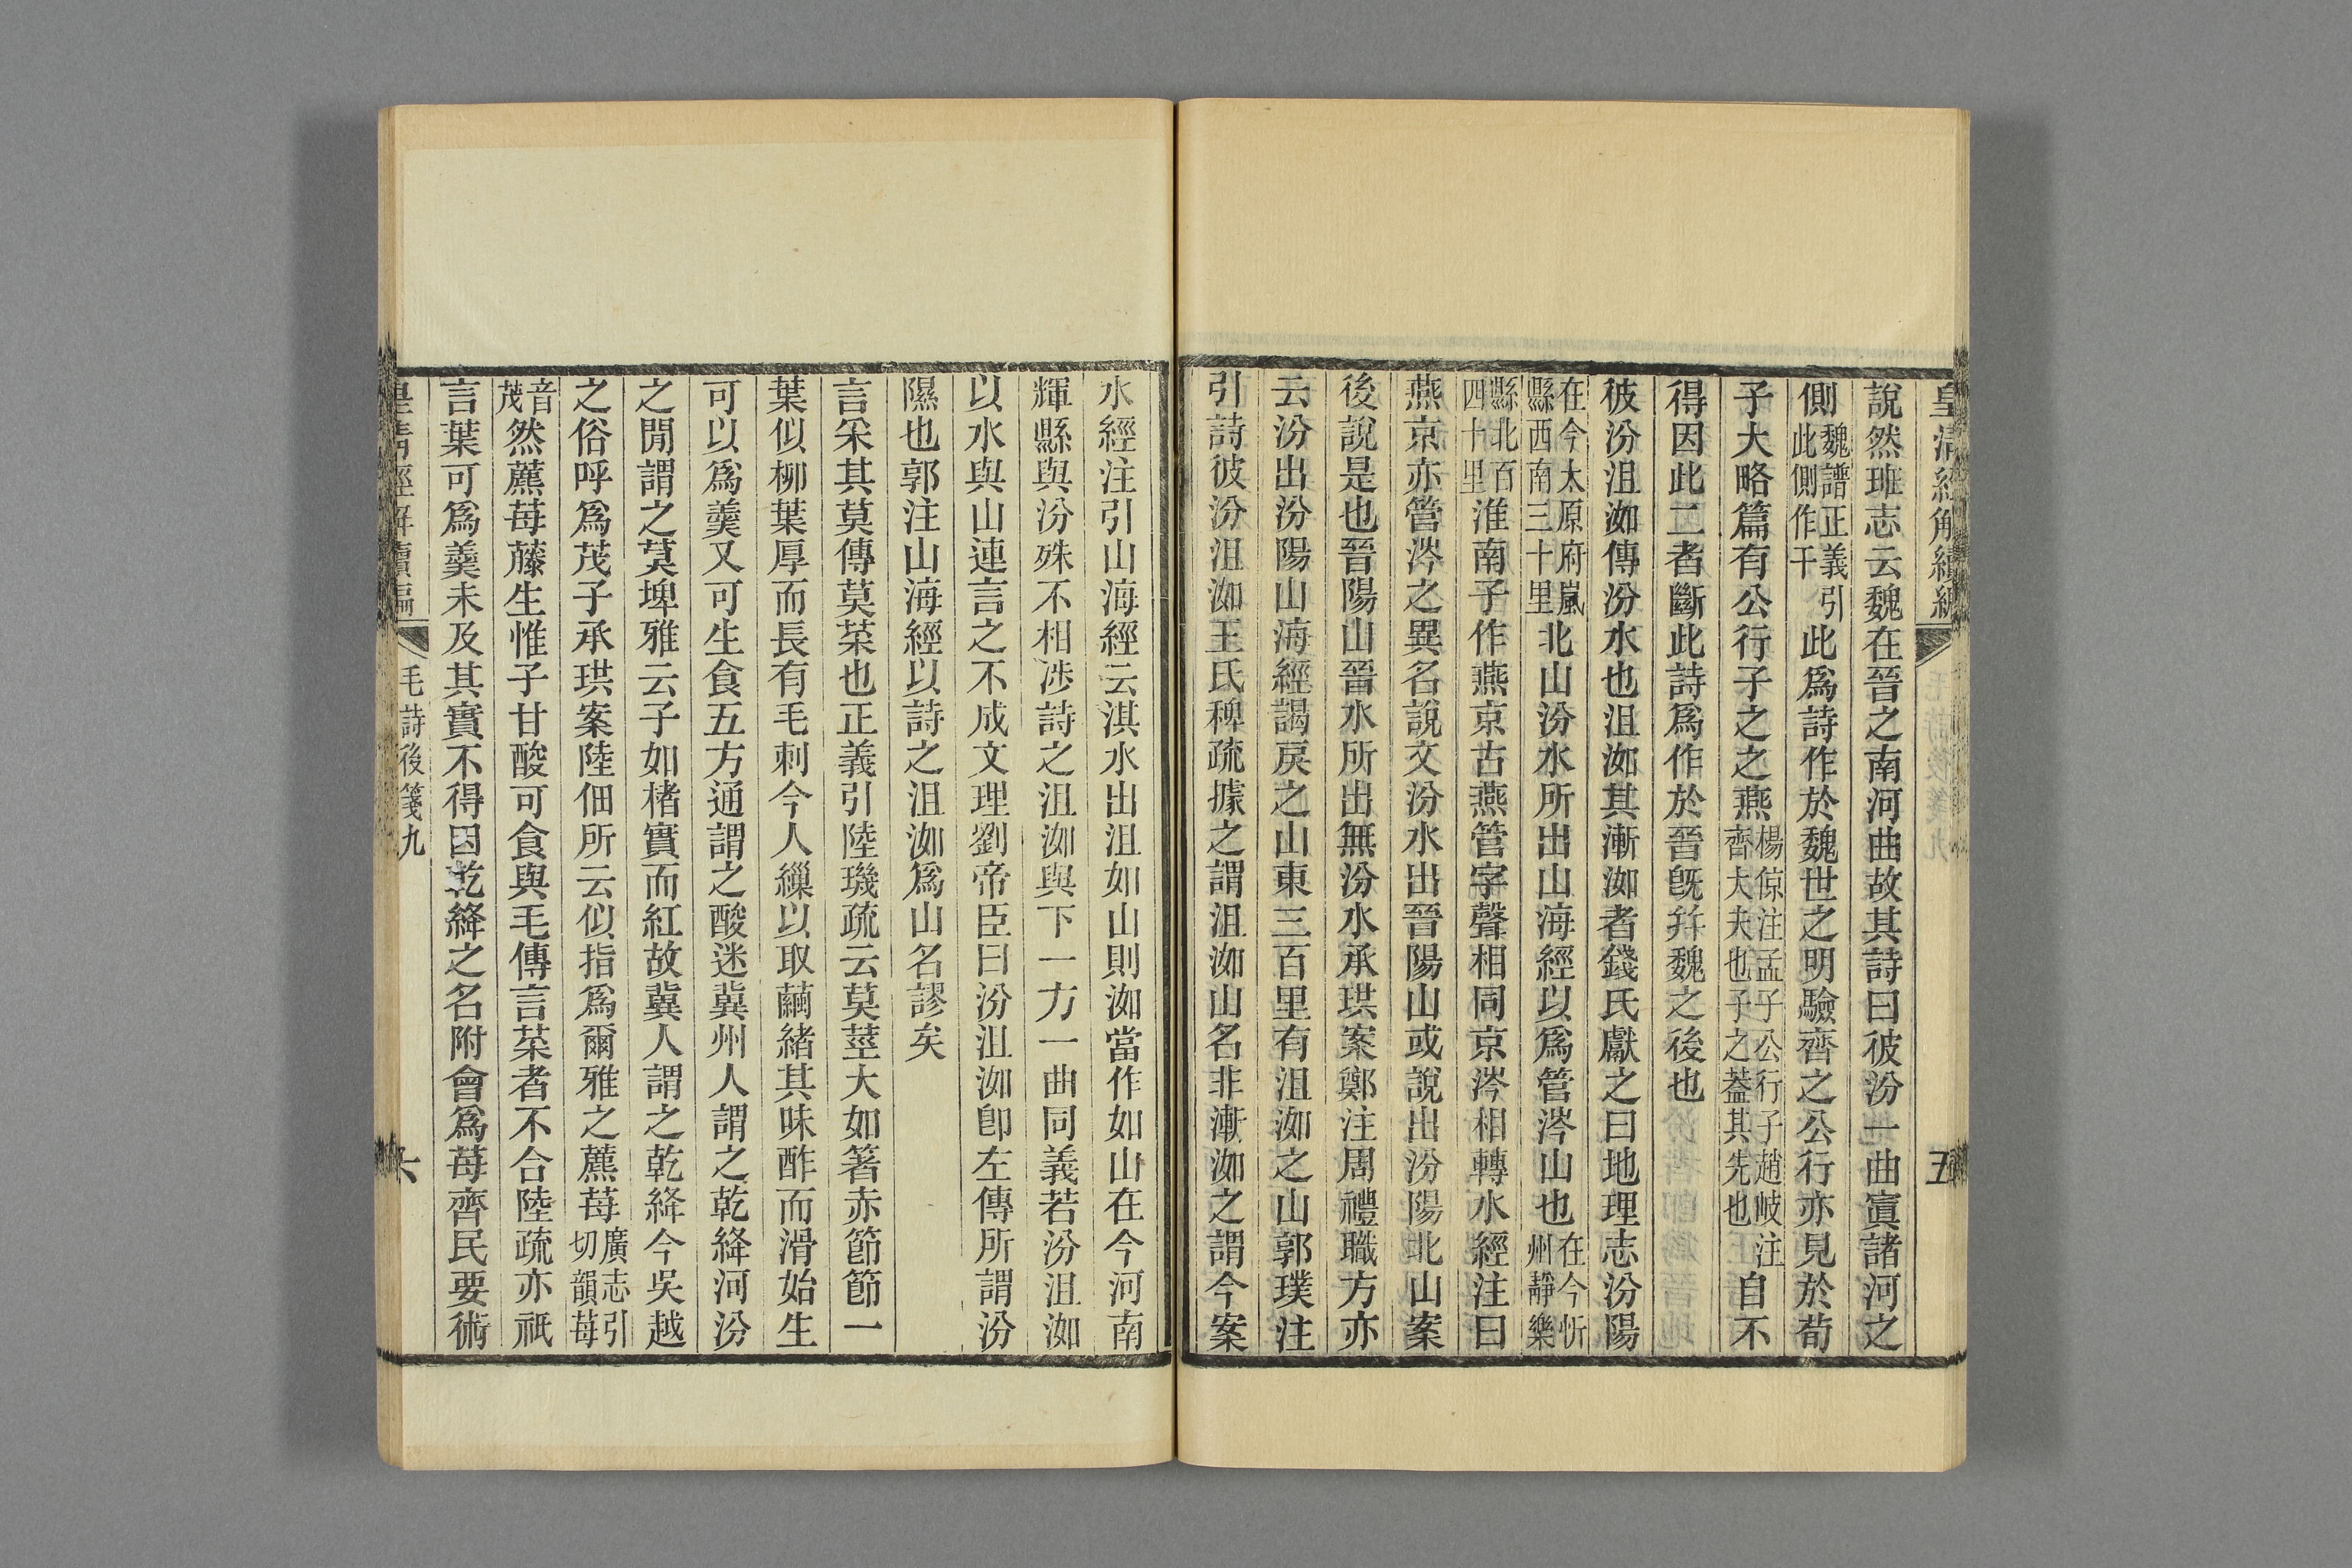 皇清經解續編
五
說然班志云魏在晉之南河曲故其詩曰彼汾一曲寘諸河之
側魏譜正義引此側作干此爲詩作於魏世之明驗齊之公行亦見於荀
子大略篇有公行子之之燕楊倞注孟子公行子趙岐注齊大夫也子之蓋其先也自不
得因此二者斷此詩爲作於晉旣并魏之後也
彼汾沮洳傳汾水也沮洳其漸洳者錢氏獻之曰地理志汾陽
在今太原府嵐縣西南三十里北山汾水所出山海經以爲管涔山也在今忻州靜樂
縣北百四十里淮南子作燕京古燕管字聲相同京涔相轉水經注曰
燕京亦管涔之異名說文汾水出晉陽山或說出汾陽北山案
後說是也晉陽山晉水所出無汾水承珙案鄭注周禮職方亦
云汾出汾陽山海經謁戾之山東三百里有沮洳之山郭璞注
引詩彼汾沮洳王氏稗疏據之謂沮洳山名非漸洳之謂今案
水經注引山海經云淇水出沮如山則洳當作如山在今河南
輝縣與汾殊不相涉詩之沮洳與下一方一曲同義若汾沮洳
以水與山連言之不成文理劉帝臣曰汾沮洳卽左傳所謂汾
隰也郭注山海經以詩之沮洳爲山名謬矣
言采其莫傳莫菜也正義引陸璣疏云莫莖大如箸赤節節一
葉似柳葉厚而長有毛刺今人繅以取繭緒其味酢而滑始生
可以爲羹又可生食五方通謂之酸迷冀州人謂之乾絳河汾
之閒謂之莫埤雅云子如楮實而紅故冀人謂之乾絳今吳越
之俗呼爲茂子承珙案陸佃所云似指爲爾雅之藨莓廣志引切韻莓
音茂然藨莓藤生惟子甘酸可食與毛傳言菜者不合陸疏亦祇
言葉可爲羹未及其實不得因乾絳之名附會爲莓齊民要術
皇清經解續編
毛詩後箋九
六